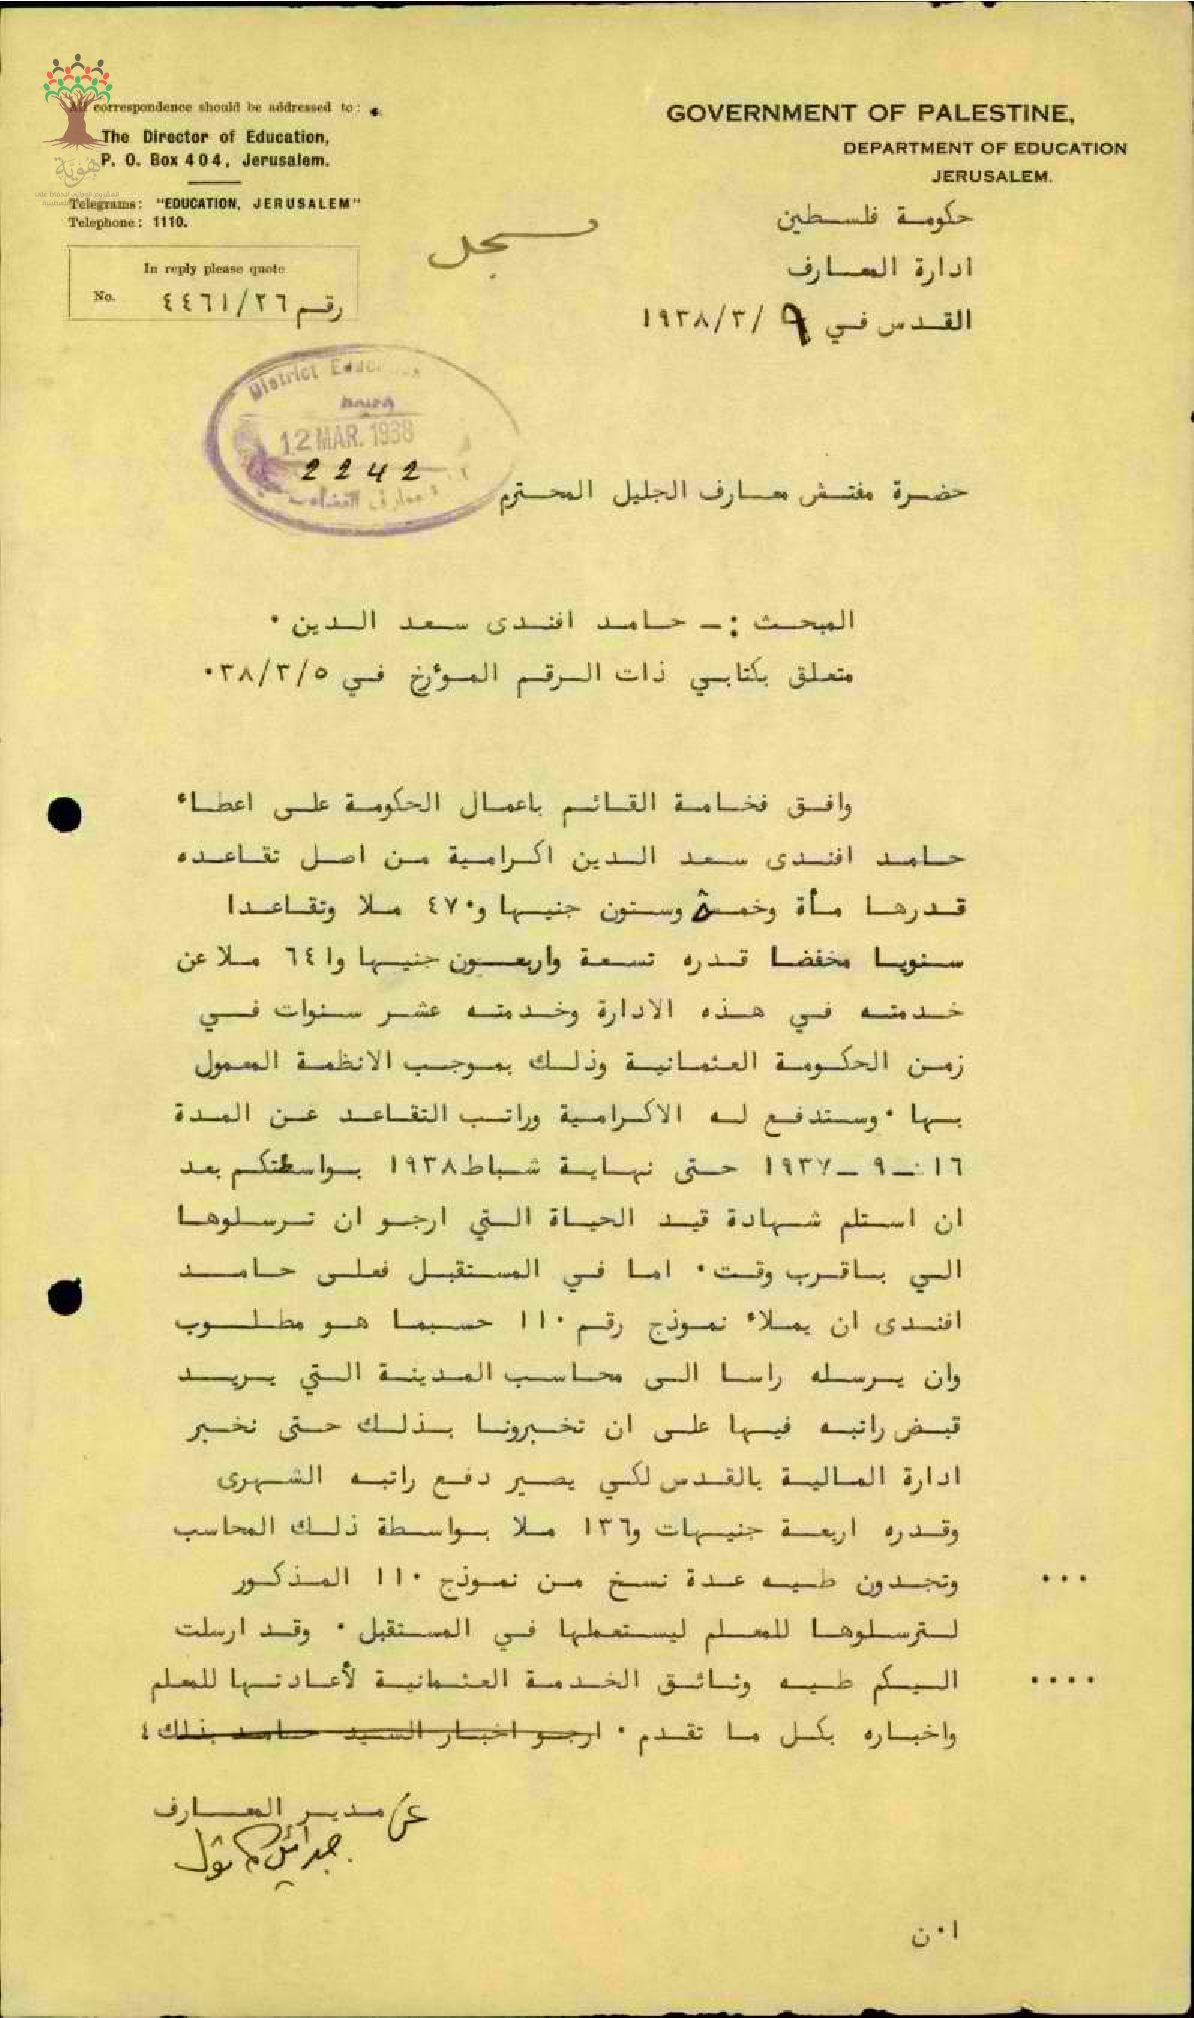 All correspondence should be addressed to:
The Director of Education,
P. O. Box 404, Jerusalem.
Telegrams: "EDUCATION, JERUSALEM"
Telephone: 1110.
In reply please quote
No. رقم ٤٤٦١/٢٦
GOVERNMENT OF PALESTINE,
DEPARTMENT OF EDUCATION
JERUSALEM.
حكومة فلسطين
ادارة المعارف
القدس في ٩ /٣/١٩٣٨
سجل
هوية
District Educa
12 MAR. 1938
2242
حضرة مفتش معارف الجليل المحترم
المبحث :ـ حامد افندى سعد الدين ٠
متعلق بكتابي ذات الرقم المؤرخ في ٣٨/٣/٥٠
وافق فخامة القائم باعمال الحكومة على اعطاء
حامد افندى سعد الدين اكرامية من اصل تقاعده
قدرها مأة وخمسة وستون جنيها و٤٧٠ ملا وتقاعدا
سنويا مخفضا قدره تسعة واربعون جنيها و٦٤١ ملا عن
خدمته في هذه الادارة وخدمته عشر سنوات في
زمن الحكومة العثمانية وذلك بموجب الانظمة المعمول
بها ٠ وستدفع له الاكرامية وراتب التقاعد عن المدة
١٦ـ ٩ ـ ١٩٣٧ حتى نهاية شباط ١٩٣٨ بواسطتكم بعد
ان استلم شهادة قيد الحياة التي ارجو ان ترسلوها
الي باقرب وقت ٠ اما في المستقبل فعلى حامد
افندى ان يملاء نموذج رقم ١١٠ حسبما هو مطلوب
وان يرسله راسا الى محاسب المدينة التي يريد
قبض راتبه فيها على ان تخبرونا بذلك حتى نخبر
ادارة المالية بالقدس لكي يصير دفع راتبه الشهرى
وقدره اربعة جنيهات و١٣٦ ملا بواسطة ذلك المحاسب
وتجدون طيه عدة نسخ من نموذج ١١٠ المذكور ...
لترسلوها للمعلم ليستعملها في المستقبل ٠ وقد ارسلت
اليكم طيه وثائق الخدمة العثمانية لأعادتها للمعلم ....
واخباره بكل ما تقدم ٠ ارجو اخبار السيد حامد بذلك ٤
عن مدير المعارف
جبرائيل كاتول
ا ٠ ن